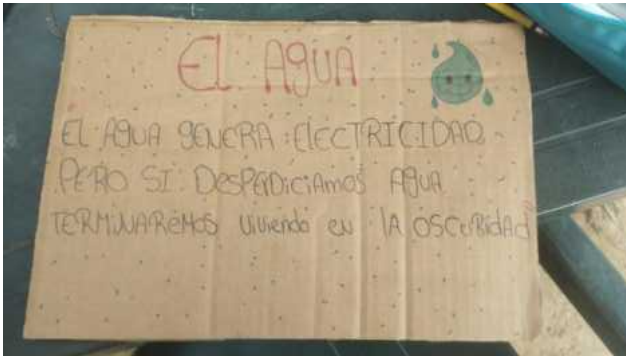 El AgUA
EL AgUA gENERA : ElECTRICIDAD
PERO SI : DesPERDiCiAmos AgUA
TERMINAREMOS viviendo en lA OSCuRidAd!!